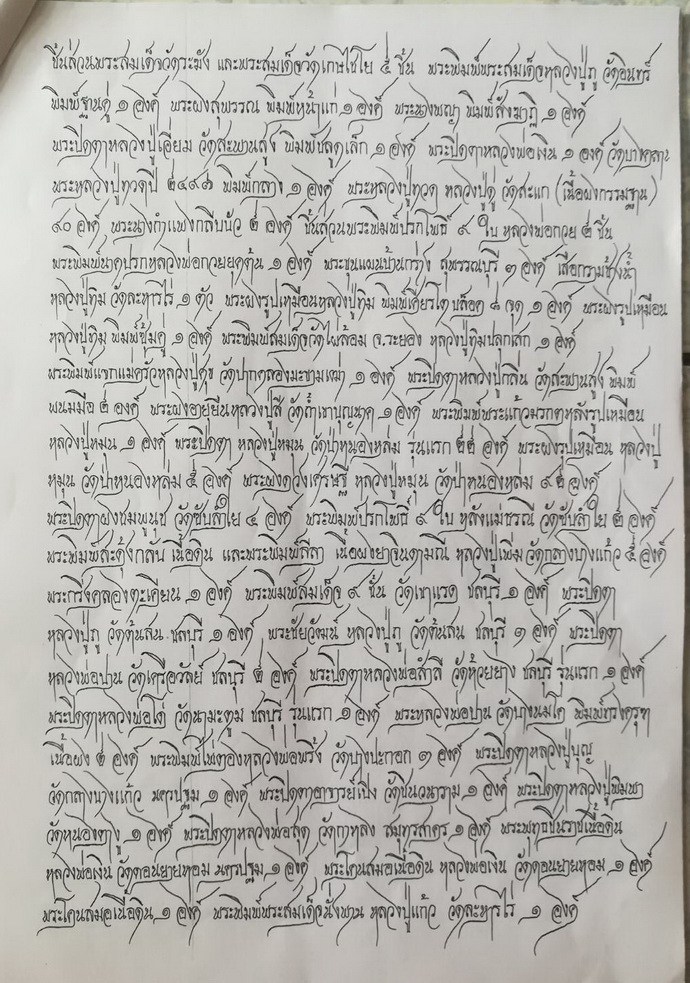 ชิ้นส่วนพระสมเด็จวัดระฆัง และพระสมเด็จวัดเกษไชโย ๕ ชิ้น พระพิมพ์พระสมเด็จหลวงปู่ภู วัดอินทร์
พิมพ์ฐานคู่ ๑ องค์ พระผงสุพรรณ พิมพ์หน้าแก่ ๑ องค์ พระนางพญา พิมพ์สังฆาฏิ ๑ องค์
พระปิดตาหลวงปู่เอี่ยม วัดสะพานสูง พิมพ์ชลูดเล็ก ๑ องค์ พระปิดตาหลวงพ่อเงิน ๑ องค์ วัดบางคลาน
พระหลวงปู่ทวดปี ๒๔๙๗ พิมพ์กลาง ๑ องค์ พระหลวงปู่ทวด หลวงปู่ดู่ วัดสะแก (เนื้อผงกรรมฐาน)
๙๐ องค์ พระนางกำแพงกลีบบัว ๒ องค์ ชิ้นส่วนพระพิมพ์ปรกโพธิ์ ๙ ใบ หลวงพ่อกวย ๒ ชิ้น
พระพิมพ์นาคปรกหลวงพ่อกวยยุคต้น ๑ องค์ พระขุนแผนบ้านกร่าง สุพรรณบุรี ๓ องค์ เสือกรามช้างน้ำ
หลวงปู่ทิม วัดละหารไร่ ๑ ตัว พระผงรูปเหมือนหลวงปู่ทิม พิมพ์เศียรโตบล็อค ๘ จุด ๑ องค์ พระผงรูปเหมือน
หลวงปู่ทิม พิมพ์ซุ้มคู่ ๑ องค์ พระพิมพ์สมเด็จวัดไผ่ล้อม จ.ระยอง หลวงปู่ทิมปลุกเสก ๑ องค์
พระพิมพ์แจกแม่ครัวหลวงปู่ศุข วัดปากคลองมะขามเฒ่า ๑ องค์ พระปิดตาหลวงปู่กลิ่น วัดสะพานสูง พิมพ์
พนมมือ ๕ องค์ พระผงอายุยืนหลวงปู่สี วัดถ้ำเขาบุญนาค ๑ องค์ พระพิมพ์พระแก้วมรกตหลังรูปเหมือน
หลวงปู่หมุน ๑ องค์ พระปิดตา หลวงปู่หมุน วัดป่าหนองหล่ม รุ่นแรก ๒๒ องค์ พระผงรูปเหมือน หลวงปู่
หมุน วัดป่าหนองหล่ม ๕ องค์ พระผงดวงเศรษฐี หลวงปู่หมุน วัดป่าหนองหล่ม ๙๒ องค์
พระปิดตาผงชมพูนุช วัดซับลำใย ๔ องค์ พระพิมพ์ปรกโพธิ์ ๙ ใบ หลังแม่ธรณี วัดซับลำใย ๒ องค์
พระพิมพ์สะดุ้งกลับ เนื้อดิน และพระพิมพ์ลีลา เนื้อผงยาจินดามณี หลวงปู่เพิ่ม วัดกลางบางแก้ว ๕ องค์
พระกริ่งคลองตะเคียน ๑ องค์ พระพิมพ์สมเด็จ ๙ ชั้น วัดเขาแรด ชลบุรี ๑ องค์ พระปิดตา
หลวงปู่ภู่ วัดต้นสน ชลบุรี ๑ องค์ พระชัยวัฒน์ หลวงปู่ภู่ วัดต้นสน ชลบุรี ๑ องค์ พระปิดตา
หลวงพ่อปาน วัดเครือวัลย์ ชลบุรี ๒ องค์ พระปิดตาหลวงพ่อสำลี วัดห้วยยาง ชลบุรี รุ่นแรก ๑ องค์
พระปิดตาหลวงพ่อโด่ วัดนามะตูม ชลบุรี รุ่นแรก ๑ องค์ พระหลวงพ่อปาน วัดบางนมโค พิมพ์ทรงครุฑ
เนื้อผง ๒ องค์ พระพิมพ์ไพ่ตองหลวงพ่อพริ้ง วัดบางปะกอก ๓ องค์ พระปิดตาหลวงปู่บุญ
วัดกลางบางแก้ว นครปฐม ๑ องค์ พระปิดตาอาจารย์เปิง วัดชินวนาราม ๑ องค์ พระปิดตาหลวงปู่พิมพา
วัดหนองตางู ๑ องค์ พระปิดตาหลวงพ่อสุด วัดกาหลง สมุทรสาคร ๑ องค์ พระพุทธชินราชเนื้อดิน
หลวงพ่อเงิน วัดดอนยายหอม นครปฐม ๑ องค์ พระโคนสมอเนื้อดิน หลวงพ่อเงิน วัดดอนยายหอม ๑ องค์
พระโคนสมอเนื้อดิน ๑ องค์ พระพิมพ์พระสมเด็จนั่งพาน หลวงปู่แก้ว วัดละหารไร่ ๑ องค์